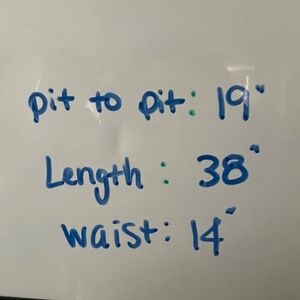 pit to pit: 19"
Length : 38"
waist: 14"